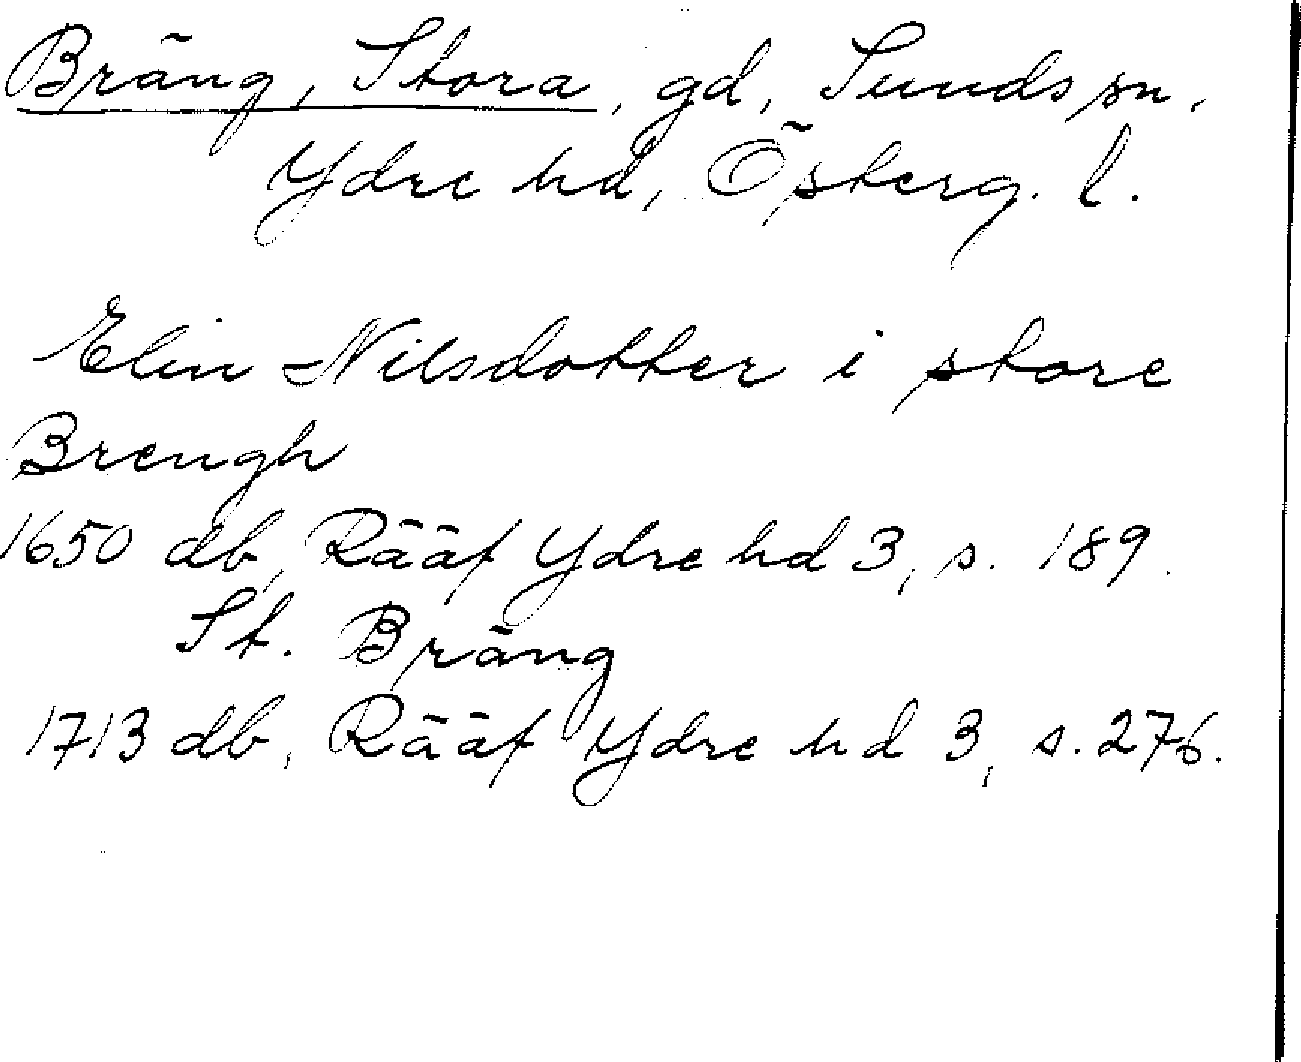 Bräng, Stora, gd, Sunds sn,
Ydre hd, Österg. l.
Elin Nilsdotter i store
Brengh
1650 db, Rääf Ydre hd 3, s. 189.
St. Bräng
1713 db, Rääf Ydre hd 3, s. 276.